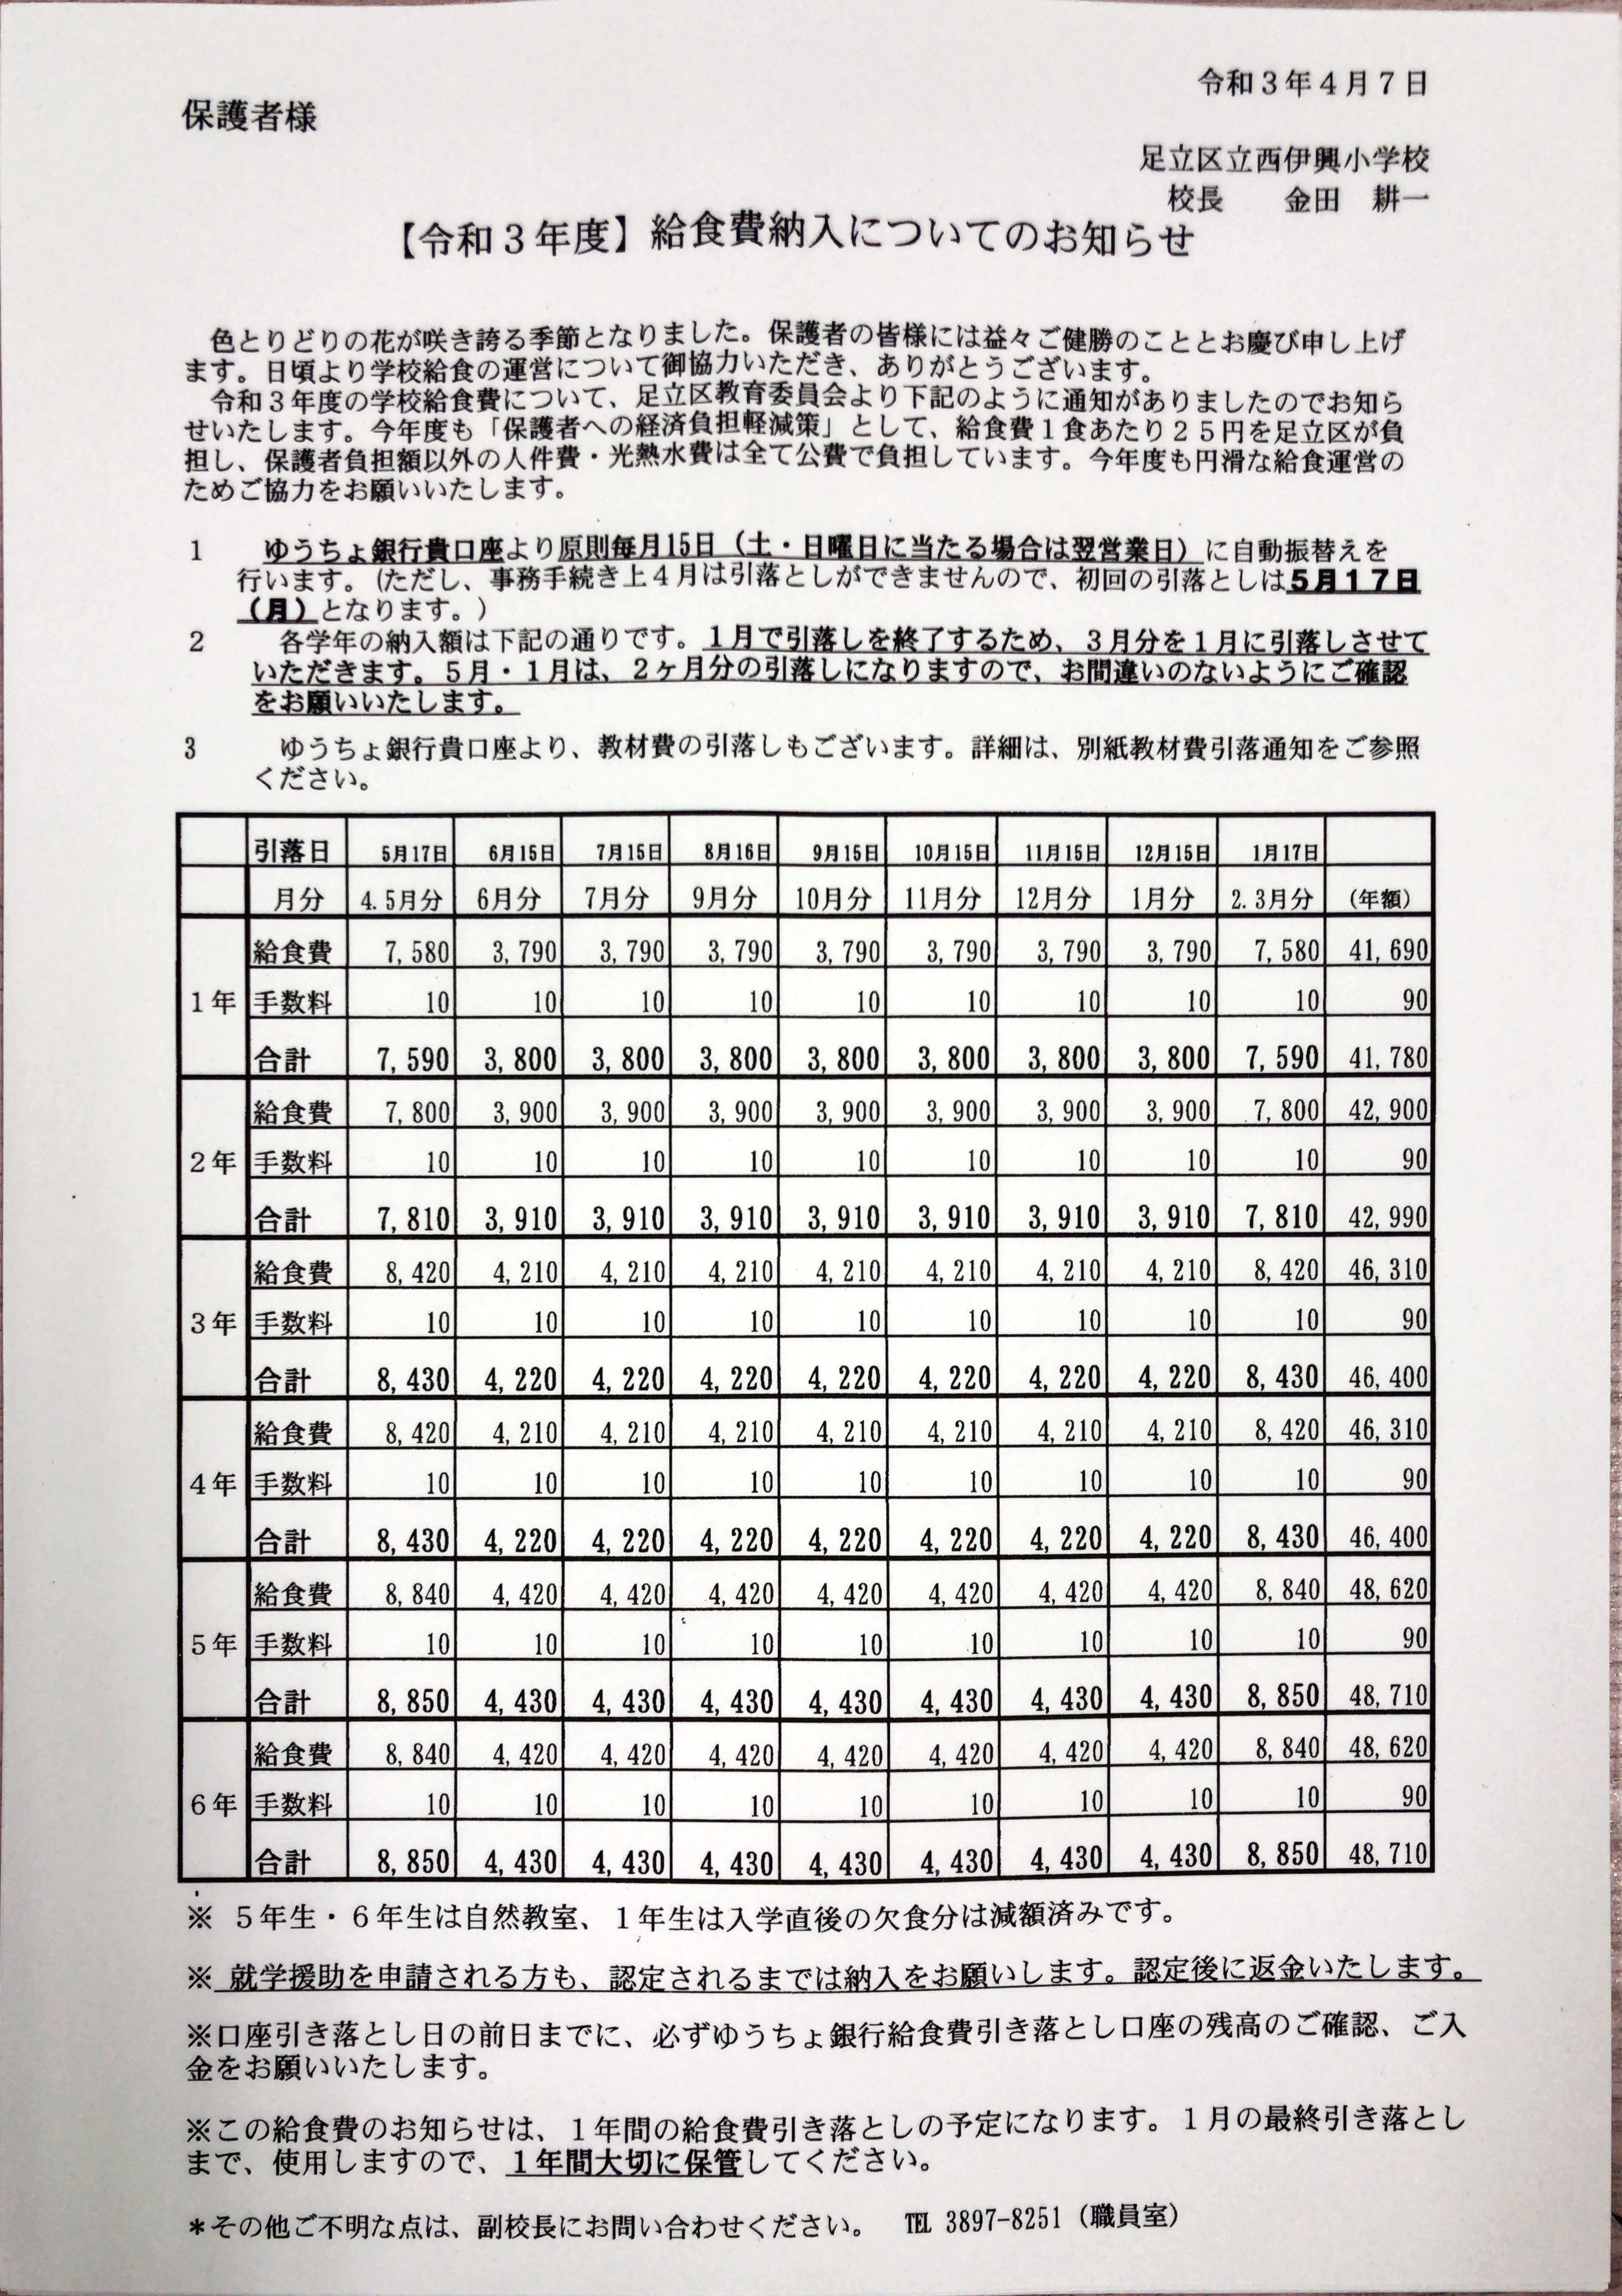 令和３年４月７日
保護者様
足立区立西伊興小学校
校長　　金田　耕一
【令和３年度】給食費納入についてのお知らせ
色とりどりの花が咲き誇る季節となりました。保護者の皆様には益々ご健勝のこととお慶び申し上げ
ます。日頃より学校給食の運営について御協力いただき、ありがとうございます。
令和３年度の学校給食費について、足立区教育委員会より下記のように通知がありましたのでお知ら
せいたします。今年度も「保護者への経済負担軽減策」として、給食費１食あたり２５円を足立区が負
担し、保護者負担額以外の人件費・光熱水費は全て公費で負担しています。今年度も円滑な給食運営の
ためご協力をお願いいたします。
1　ゆうちょ銀行貴口座より原則毎月15日（土・日曜日に当たる場合は翌営業日）に自動振替えを
行います。(ただし、事務手続き上４月は引落としができませんので、初回の引落としは５月１７日
（月）となります。）
2　各学年の納入額は下記の通りです。１月で引落しを終了するため、３月分を１月に引落しさせて
いただきます。５月・１月は、２ヶ月分の引落しになりますので、お間違いのないようにご確認
をお願いいたします。
3　ゆうちょ銀行貴口座より、教材費の引落しもございます。詳細は、別紙教材費引落通知をご参照
ください。
引落日 5月17日 6月15日 7月15日 8月16日 9月15日 10月15日 11月15日 12月15日 1月17日
月分 4.5月分 6月分 7月分 9月分 10月分 11月分 12月分 1月分 2.3月分 (年額)
給食費 7,580 3,790 3,790 3,790 3,790 3,790 3,790 3,790 7,580 41,690
1年 手数料 10 10 10 10 10 10 10 10 10 90
合計 7,590 3,800 3,800 3,800 3,800 3,800 3,800 3,800 7,590 41,780
給食費 7,800 3,900 3,900 3,900 3,900 3,900 3,900 3,900 7,800 42,900
2年 手数料 10 10 10 10 10 10 10 10 10 90
合計 7,810 3,910 3,910 3,910 3,910 3,910 3,910 3,910 7,810 42,990
給食費 8,420 4,210 4,210 4,210 4,210 4,210 4,210 4,210 8,420 46,310
3年 手数料 10 10 10 10 10 10 10 10 10 90
合計 8,430 4,220 4,220 4,220 4,220 4,220 4,220 4,220 8,430 46,400
給食費 8,420 4,210 4,210 4,210 4,210 4,210 4,210 4,210 8,420 46,310
4年 手数料 10 10 10 10 10 10 10 10 10 90
合計 8,430 4,220 4,220 4,220 4,220 4,220 4,220 4,220 8,430 46,400
給食費 8,840 4,420 4,420 4,420 4,420 4,420 4,420 4,420 8,840 48,620
5年 手数料 10 10 10 10 10 10 10 10 10 90
合計 8,850 4,430 4,430 4,430 4,430 4,430 4,430 4,430 8,850 48,710
給食費 8,840 4,420 4,420 4,420 4,420 4,420 4,420 4,420 8,840 48,620
6年 手数料 10 10 10 10 10 10 10 10 10 90
合計 8,850 4,430 4,430 4,430 4,430 4,430 4,430 4,430 8,850 48,710
※ ５年生・６年生は自然教室、１年生は入学直後の欠食分は減額済みです。
※ 就学援助を申請される方も、認定されるまでは納入をお願いします。認定後に返金いたします。
※口座引き落とし日の前日までに、必ずゆうちょ銀行給食費引き落とし口座の残高のご確認、ご入
金をお願いいたします。
※この給食費のお知らせは、１年間の給食費引き落としの予定になります。１月の最終引き落とし
まで、使用しますので、１年間大切に保管してください。
＊その他ご不明な点は、副校長にお問い合わせください。　℡ 3897-8251（職員室）